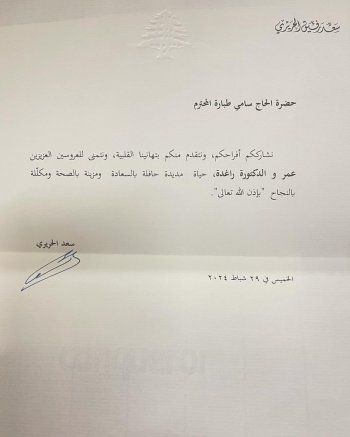 سعد رفيق الحريري
حضرة الحاج سامي طبارة المحترم
نشارككم أفراحكم، ونتقدم منكم بتهانينا القلبية، ونتمنى للعروسين العزيزين
عمر و الدكتورة راغدة، حياة مديدة حافلة بالسعادة ومزينة بالصحة ومكلّلة
بالنجاح "بإذن الله تعالى".
سعد الحريري
الخميس في ٢٩ شباط ٢٠٢٤